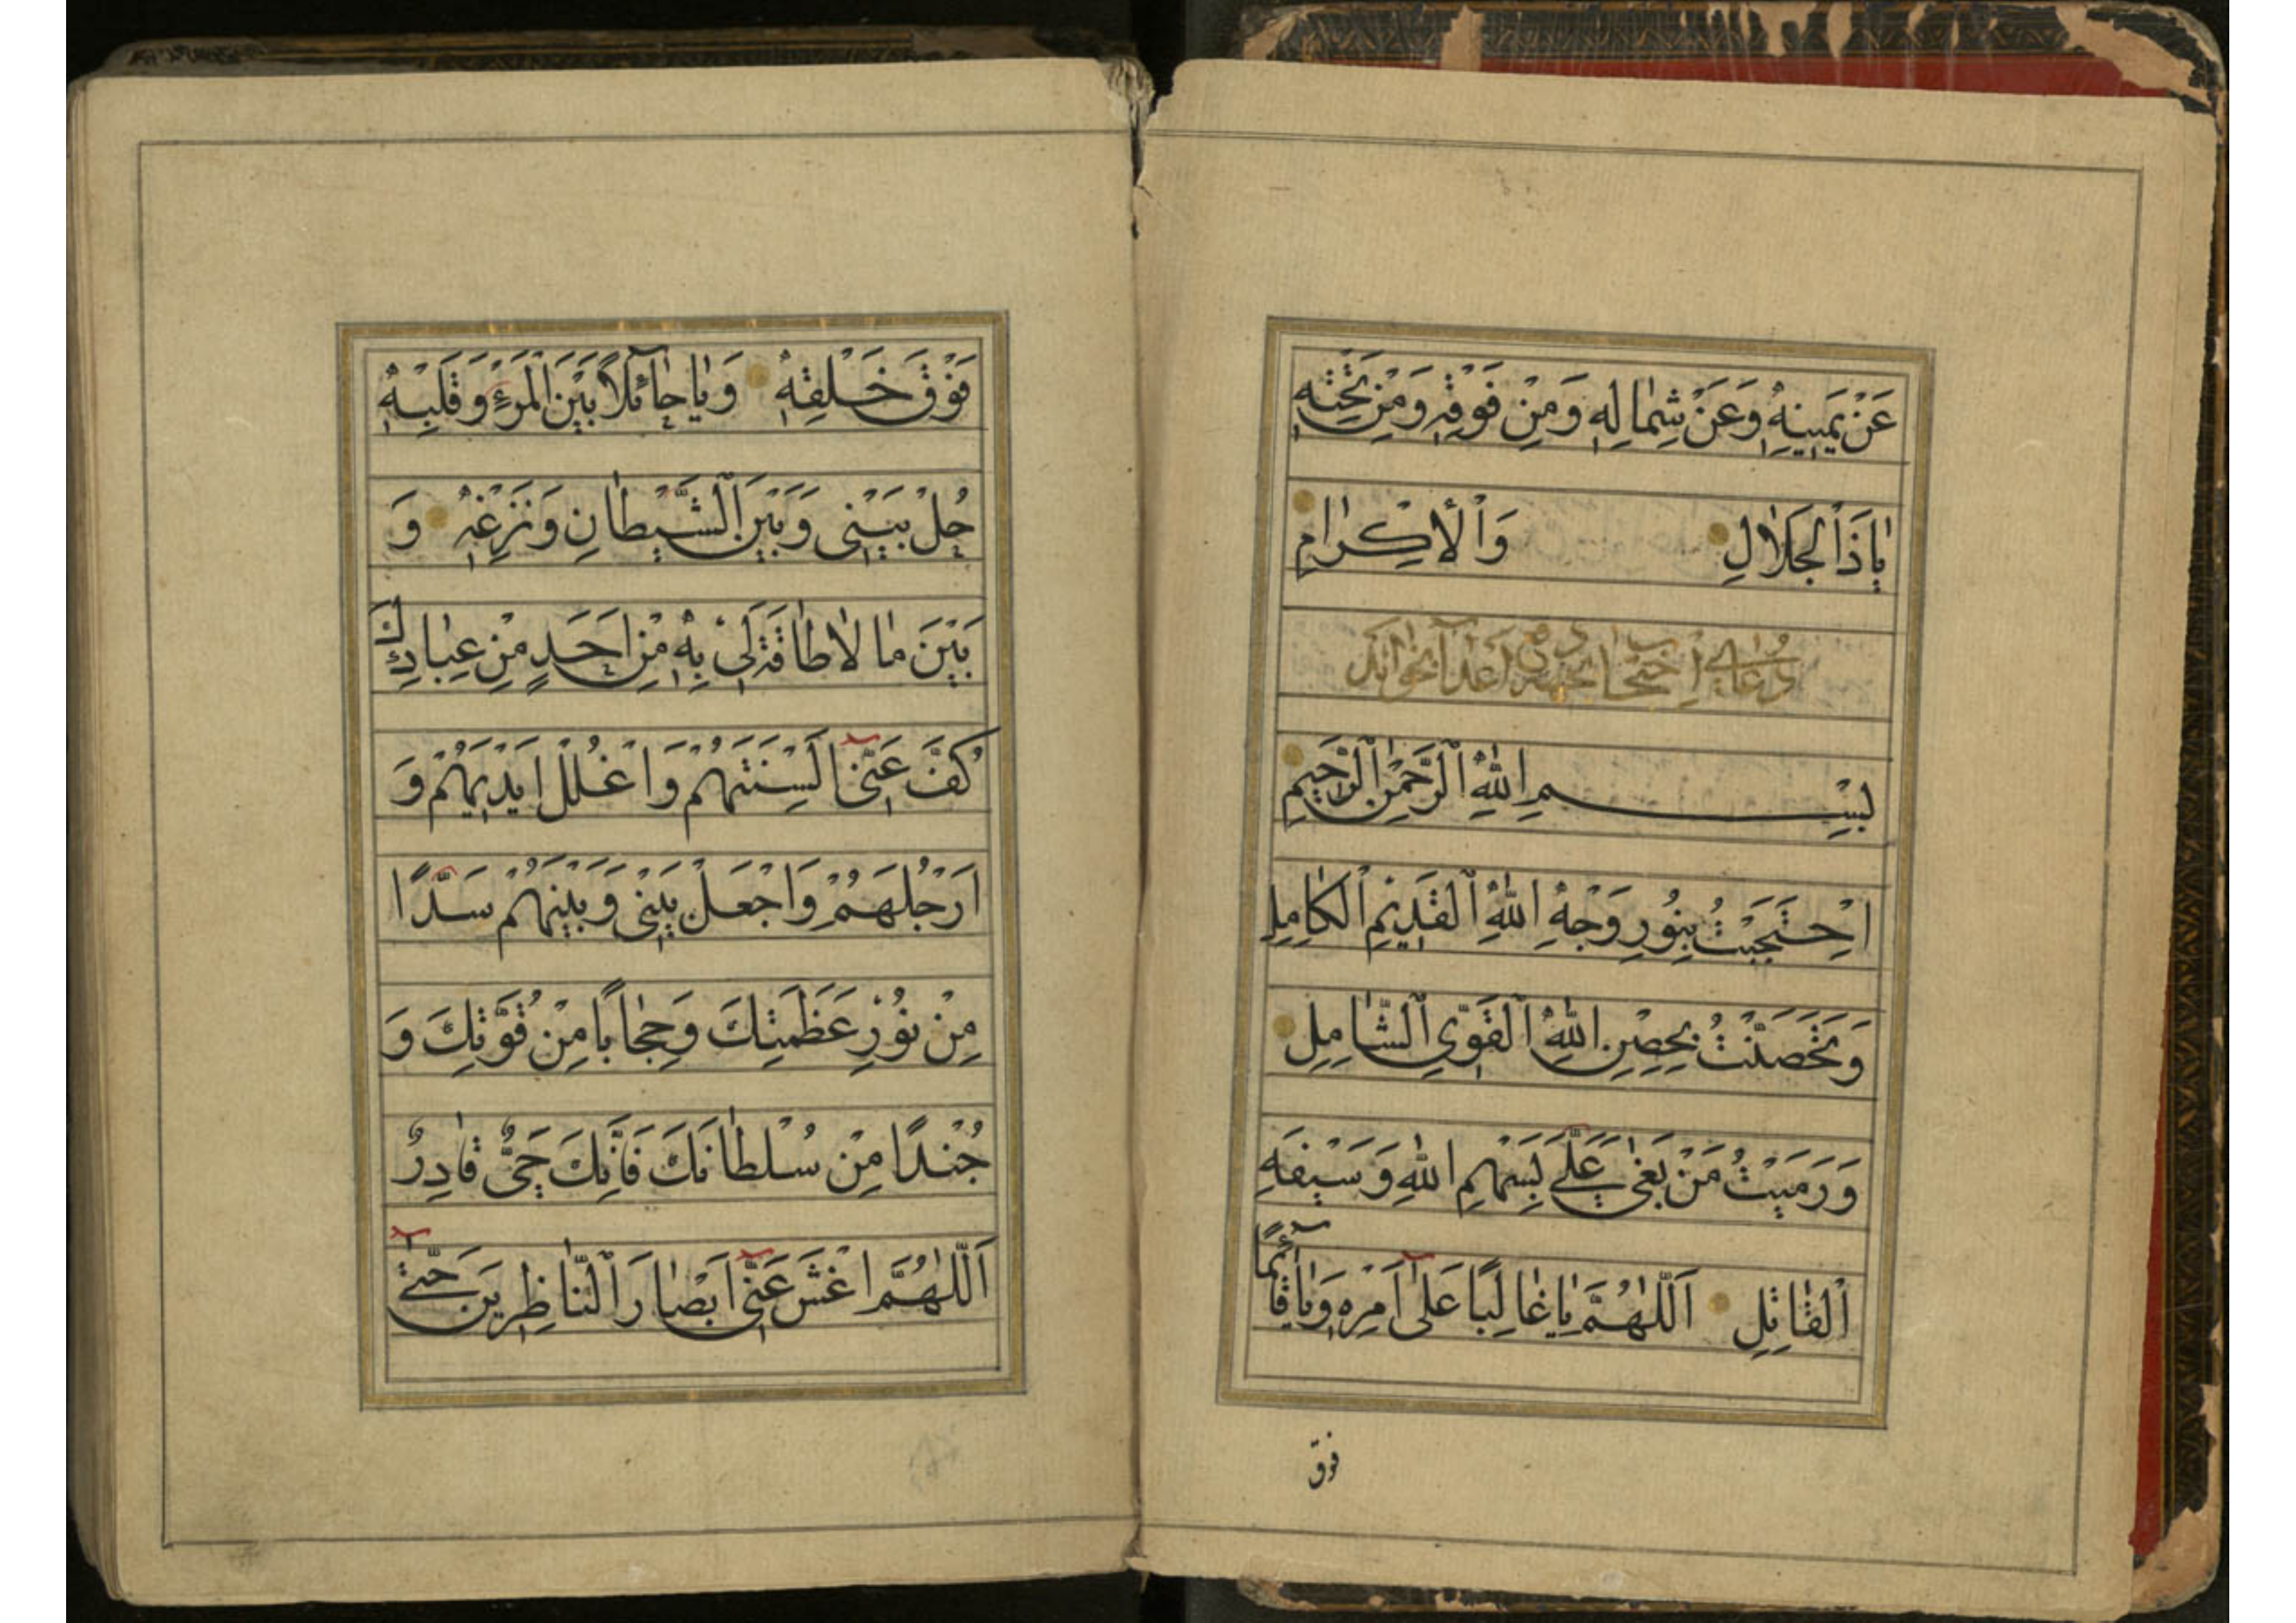 عَنْ يَمِينِهِ وَعَنْ شِمَالِهِ وَمِنْ فَوْقِهِ وَمِنْ تَحْتِهِ
يَاذَا الْجَلَالِ وَالْأِكْرَامِ
دعاى احتجاب
بِسْمِ اللَّهِ الرَّحْمٰنِ الرَّحِيمِ
اِحْتَجَبْتُ بِنُورِ وَجْهِ اللَّهِ الْقَدِيمِ الْكَامِلِ
وَتَحَصَّنْتُ بِحِصْنِ اللَّهِ الْقَوِيِّ الشَّامِلِ
وَرَمَيْتُ مَنْ بَغٰى عَلَيَّ بِسَهْمِ اللَّهِ وَسَيْفِهِ
الْقَاتِلِ اَللّٰهُمَّ يَا غَالِبًا عَلَى اَمْرِهِ وَيَا قَآئِمًا
فوق
فَوْقَ خَلْقِهِ وَيَا حَآئِلًا بَيْنَ الْمَرْءِ وَقَلْبِهِ
حُلْ بَيْنِى وَبَيْنَ الشَّيْطَانِ وَنَزْغِهِ وَ
بَيْنَ مَا لَا طَاقَةَ لِى بِهِ مِنْ اَحَدٍ مِنْ عِبَادِكَ
كُفَّ عَنِّى اَلْسِنَتَهُمْ وَاغْلُلْ اَيْدِيَهُمْ وَ
اَرْجُلَهُمْ وَاجْعَلْ بَيْنِى وَبَيْنَهُمْ سَدًّا
مِنْ نُورِ عَظَمَتِكَ وَحِجَابًا مِنْ قُوَّتِكَ وَ
جُنْدًا مِنْ سُلْطَانَكَ فَاِنَّكَ حَىٌّ قَادِرٌ
اَللّٰهُمَّ اغْشَ عَنِّى اَبْصَارَ النَّاظِرِينَ حَتّٰى